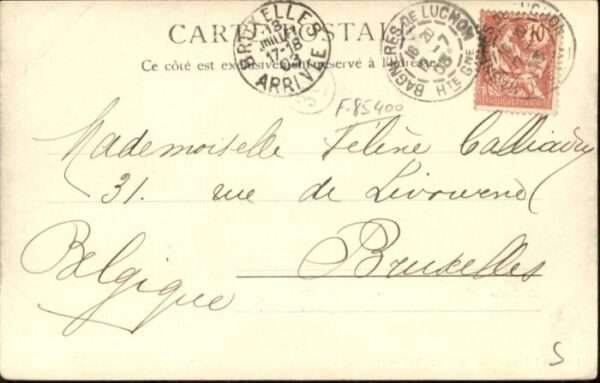 CARTE POSTALE
Ce côté est exclusivement réservé à l'adresse
BRUXELLES
18
JUILL
17-18
ARRIVÉE
BAGNÈRES-DE-LUCHON
16 20
7
03
HTE GNE
10
F.85400
Mademoiselle
31. rue de Livourne
Bruxelles
Belgique
S